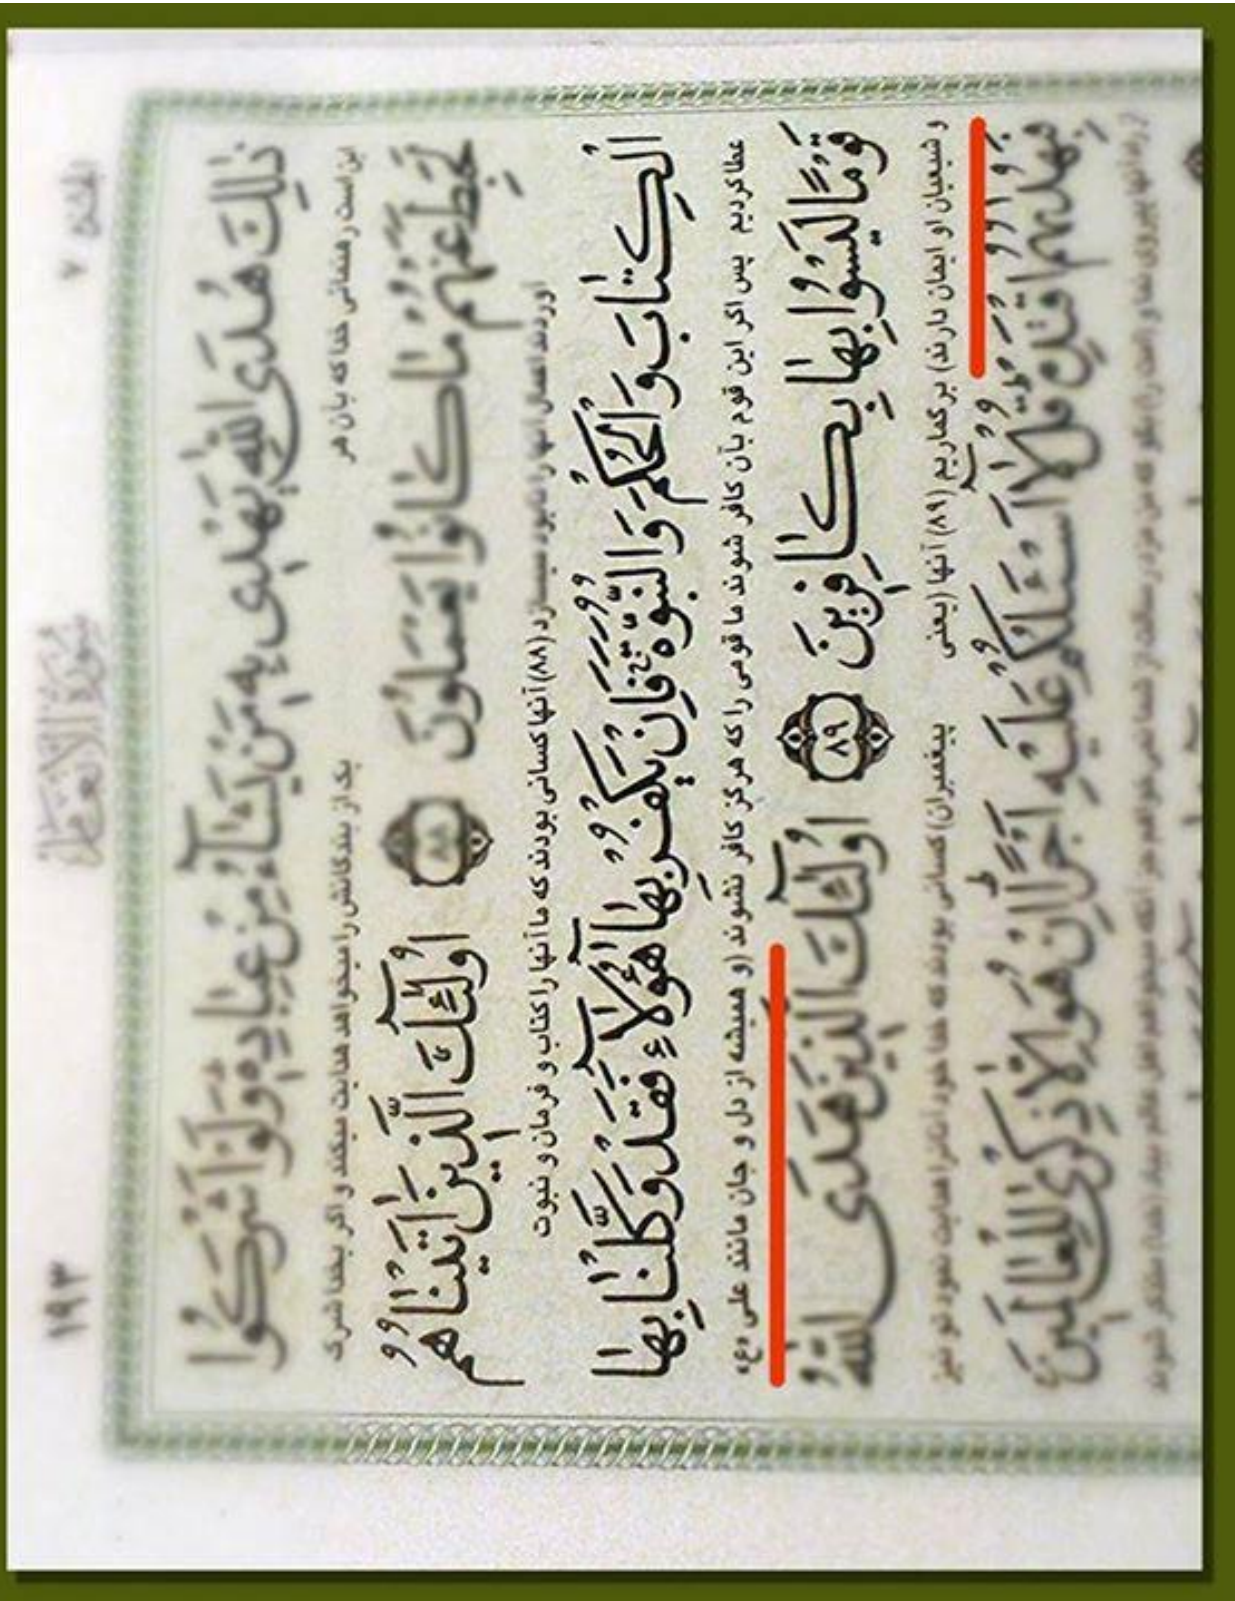 الجزء ٧ سُورَةُ الْاَنْعٰامِ ۱۹۳
ذٰلِكَ هُدَى اللّٰهِ يَهْدى بِهِ مَنْ يَشٰٓاءُ مِنْ عِبٰادِهِ وَلَوْ اَشْرَكُوا
این است رهنمائی خدا که بآن هر یک از بندگانش را میخواهد هدایت میکند و اگر بخدا شرک
لَحَبِطَ عَنْهُمْ مٰا كٰانُوا يَعْمَلُونَ ﴿۸۸﴾ اُولٰٓئِكَ الَّذينَ اٰتَيْنٰاهُمُ
آوردند اعمال آنها را نابود میسازد (۸۸) آنها کسانی بودند که ما آنها را کتاب و فرمان و نبوت
الْكِتٰابَ وَ الْحُكْمَ وَ النُّبُوَّةَ فَاِنْ يَكْفُرْ بِهٰا هٰٓؤُلٰٓاءِ فَقَدْ وَكَّلْنٰا بِهٰا
عطا کردیم پس اگر این قوم بآن کافر شوند ما قومی را که هرگز کافر نشوند (و همیشه از دل و جان مانند علی «ع»
قَوْمًا لَيْسُوا بِهٰا بِكٰافِرينَ ﴿۸۹﴾ اُولٰٓئِكَ الَّذينَ هَدَى اللّٰهُ
و شیعیان او ایمان دارند) برگماریم (۸۹) آنها (یعنی پیغمبران) کسانی بودند که خدا خود آنانرا هدایت نمود تو نیز
فَبِهُدٰيهُمُ اقْتَدِهْ قُلْ لٰٓا اَسْئَلُكُمْ عَلَيْهِ اَجْرًا اِنْ هُوَ اِلّٰا ذِكْرٰى لِلْعٰالَمينَ
آنها پیروی نما و (امت را) بگو که من مزد رسالت از شما نمی خواهم جز آنکه میخواهم اهل عالم بیاد (خدا) متذکر شوند